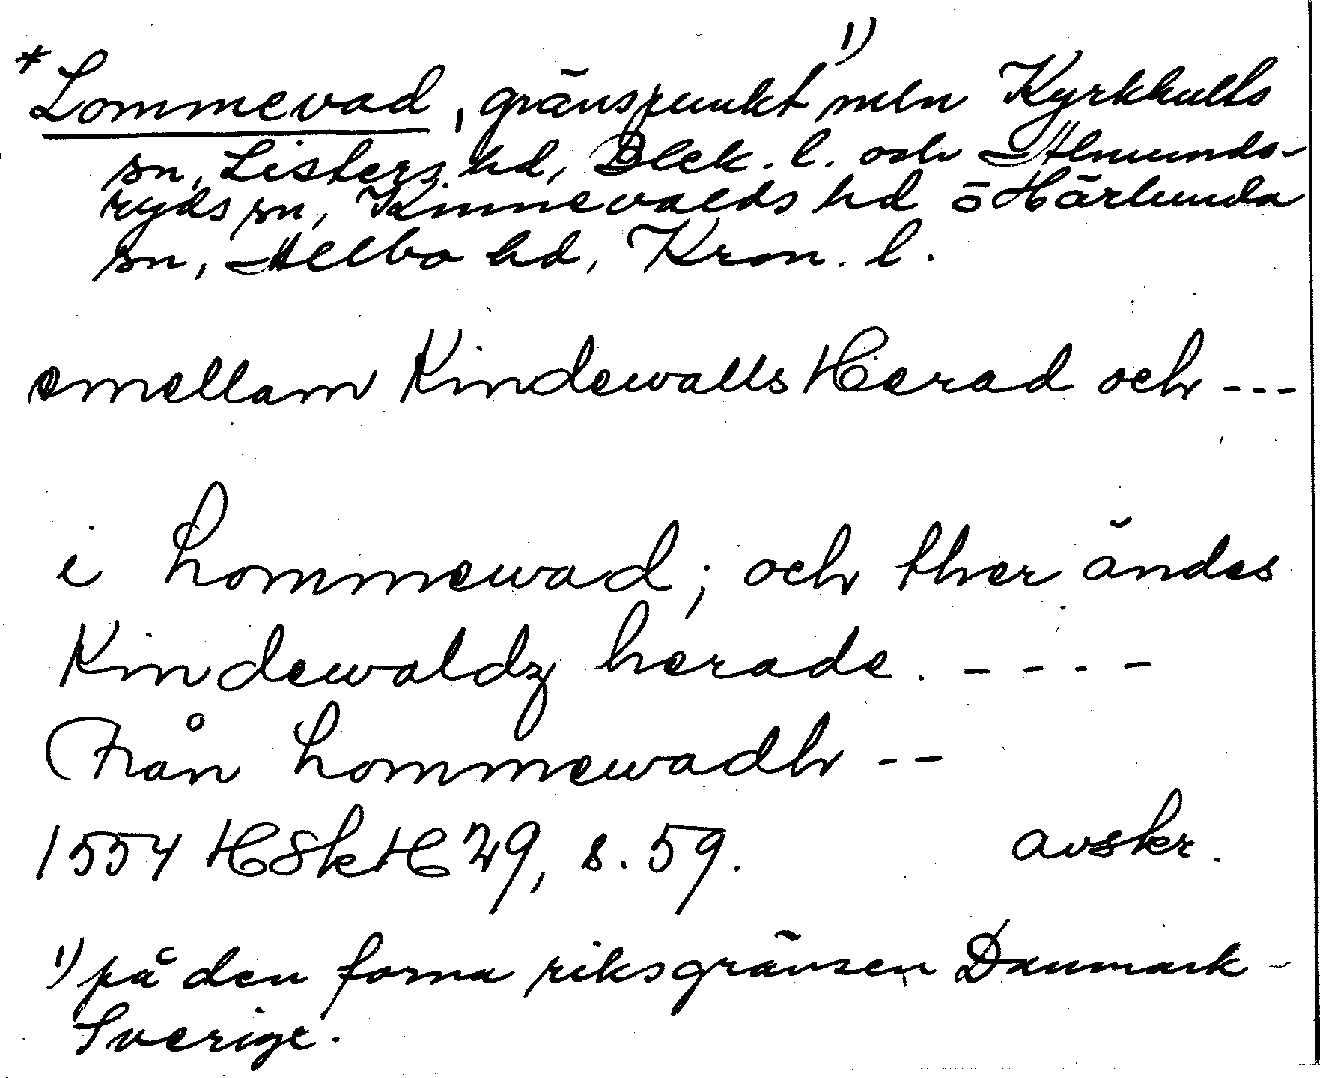 *Lommevad, gränspunkt ¹) mln Kyrkhults
sn, Listers hd, Blek. l. och Almunds-
ryds sn, Kinnevalds hd o Härlunda
sn, Allbo hd, Kron. l.
emellam Kindewalls Herad och ---
i Lommewad; och ther ändes
Kindewaldz herade. ----
Från Lommewadh --
1554 HSkH 29, s. 59. avskr.
¹) på den forna riksgränsen Danmark-
Sverige.